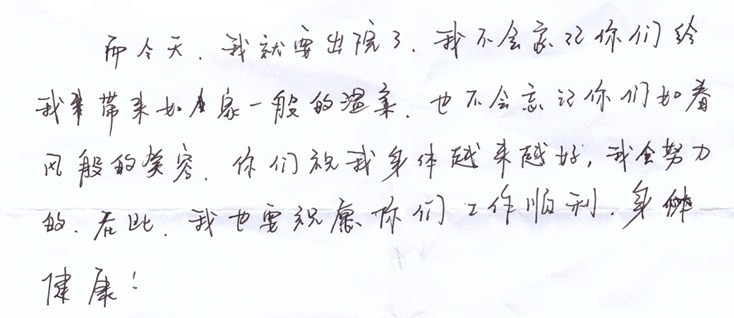 而今天，我就要出院了，我不会忘记你们给
我带来如家一般的温柔，也不会忘记你们如春
风般的笑容，你们祝我身体越来越好，我会努力
的。在此，我也要祝愿你们工作顺利，身体
健康！